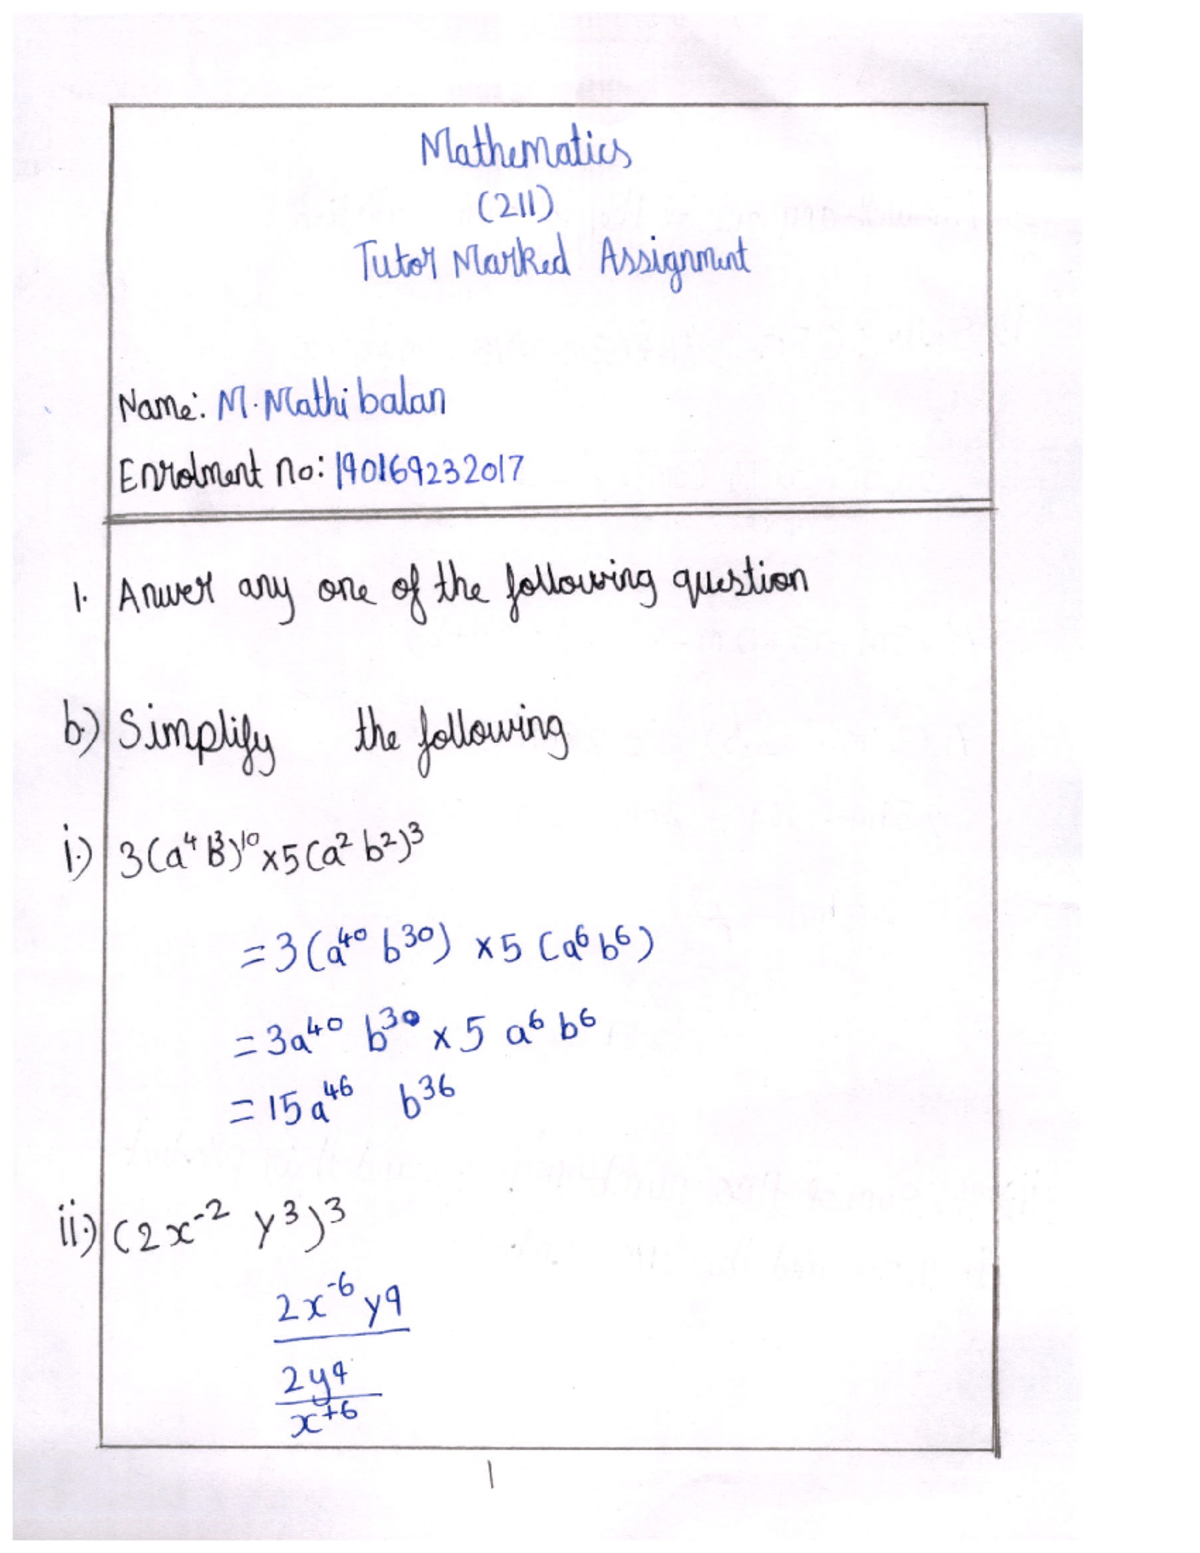 Mathematics
(211)
Tutor Marked Assignment
Name: M. Mathibalan
Enrolment no: 190169232017
1. Anwer any one of the following question
b.) Simplify the following
i.) 3(a⁴ b³)¹⁰ x5(a² b²)³
= 3(a⁴⁰ b³⁰) x5 (a⁶ b⁶)
= 3a⁴⁰ b³⁰ x 5 a⁶ b⁶
= 15a⁴⁶ b³⁶
ii.) (2x⁻² y³)³
2x⁻⁶ y9
2y⁹
x⁺⁶
1